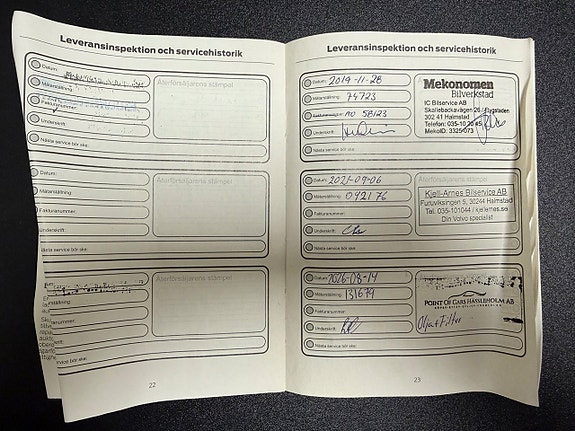 Leveransinspektion och servicehistorik
Datum:
Återförsäljarens stämpel
Mätarställning:
Fakturanummer:
Underskrift:
Nästa service bör ske:
Datum:
Återförsäljarens stämpel
Mätarställning:
Fakturanummer:
Underskrift:
Nästa service bör ske:
Återförsäljarens stämpel
22
Leveransinspektion och servicehistorik
Datum: 2019-11-28
Mätarställning: 74723
Fakturanummer:
Underskrift:
Nästa service bör ske:
Mekonomen
Bilverkstad
IC Bilservice AB
Skallebackavägen 26, Flygstaden
302 41 Halmstad
Telefon: 035-10
MekoID: 3325-073
Datum: 2021-09-06
Mätarställning: 092176
Fakturanummer:
Underskrift:
Nästa service bör ske:
Kjell-Arnes Bilservice AB
Furuviksringen 5, 30244 Halmstad
Tel. 035-101044 / kjellarnes.se
Din Volvo specialist
Datum:
Mätarställning: 131679
Fakturanummer:
Underskrift:
Nästa service bör ske:
POINT OF CARS HÄSSLEHOLM AB
Olja+Filter
23